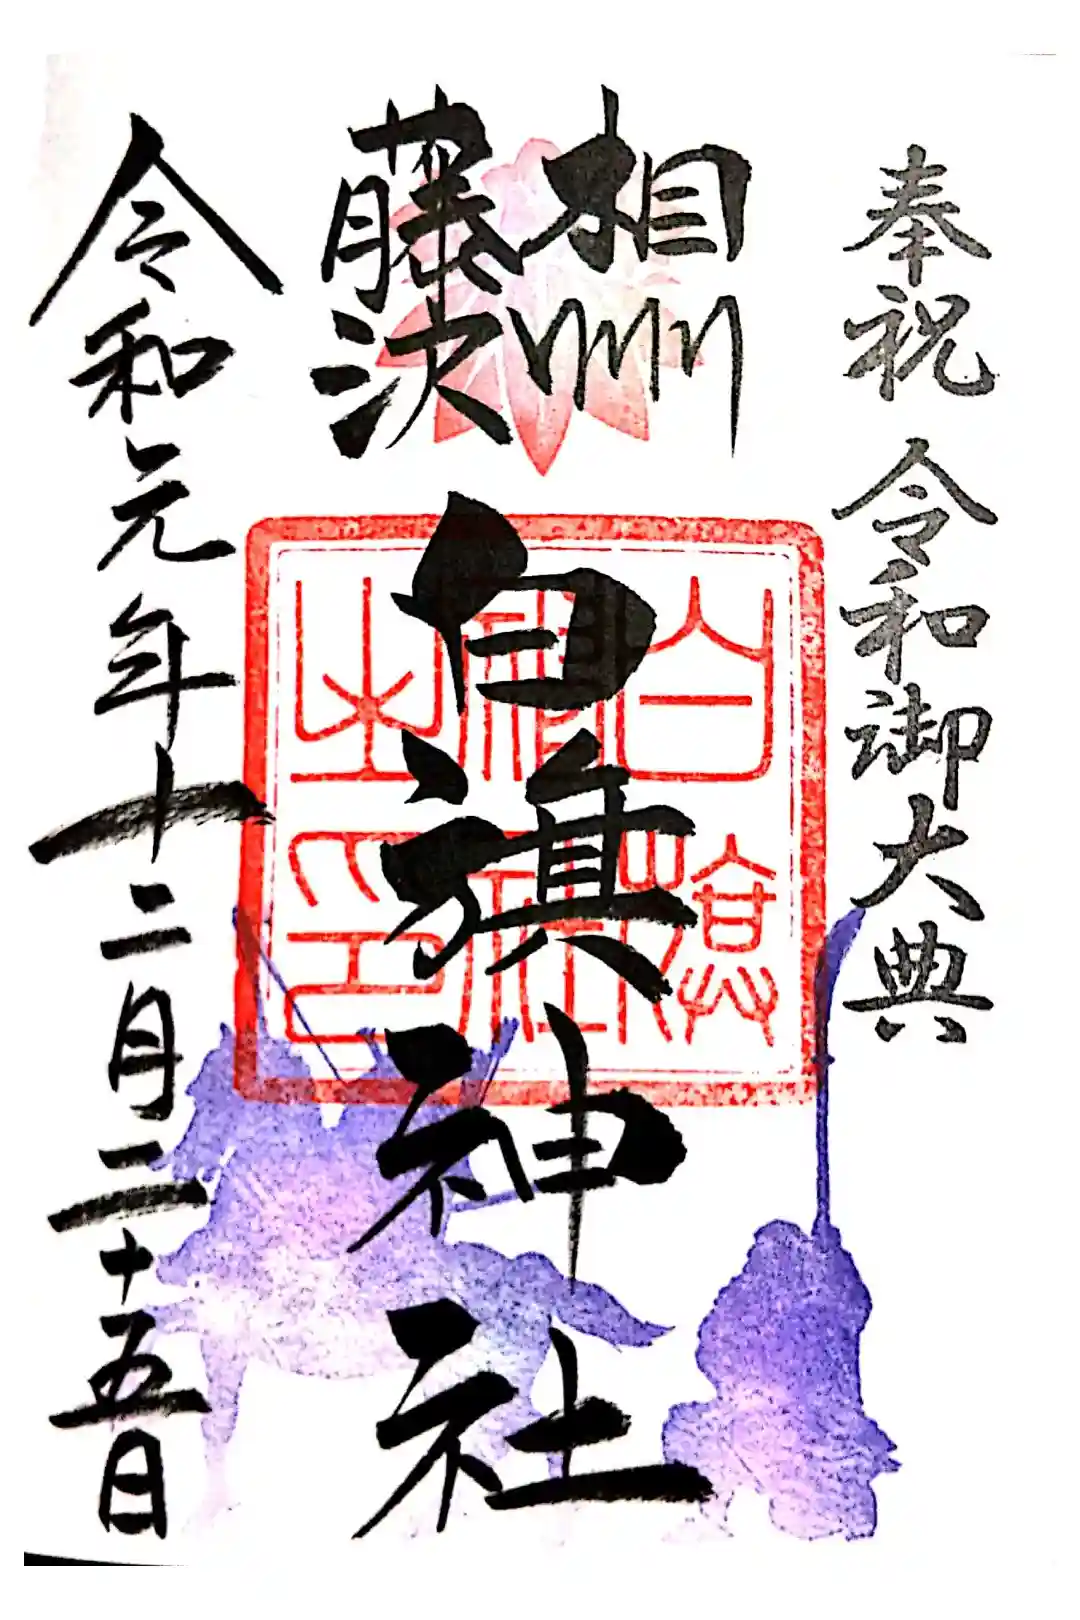 奉祝 令和御大典
相州
藤沢
白旗神社
白旗
神社
之印
令和元年十二月二十五日